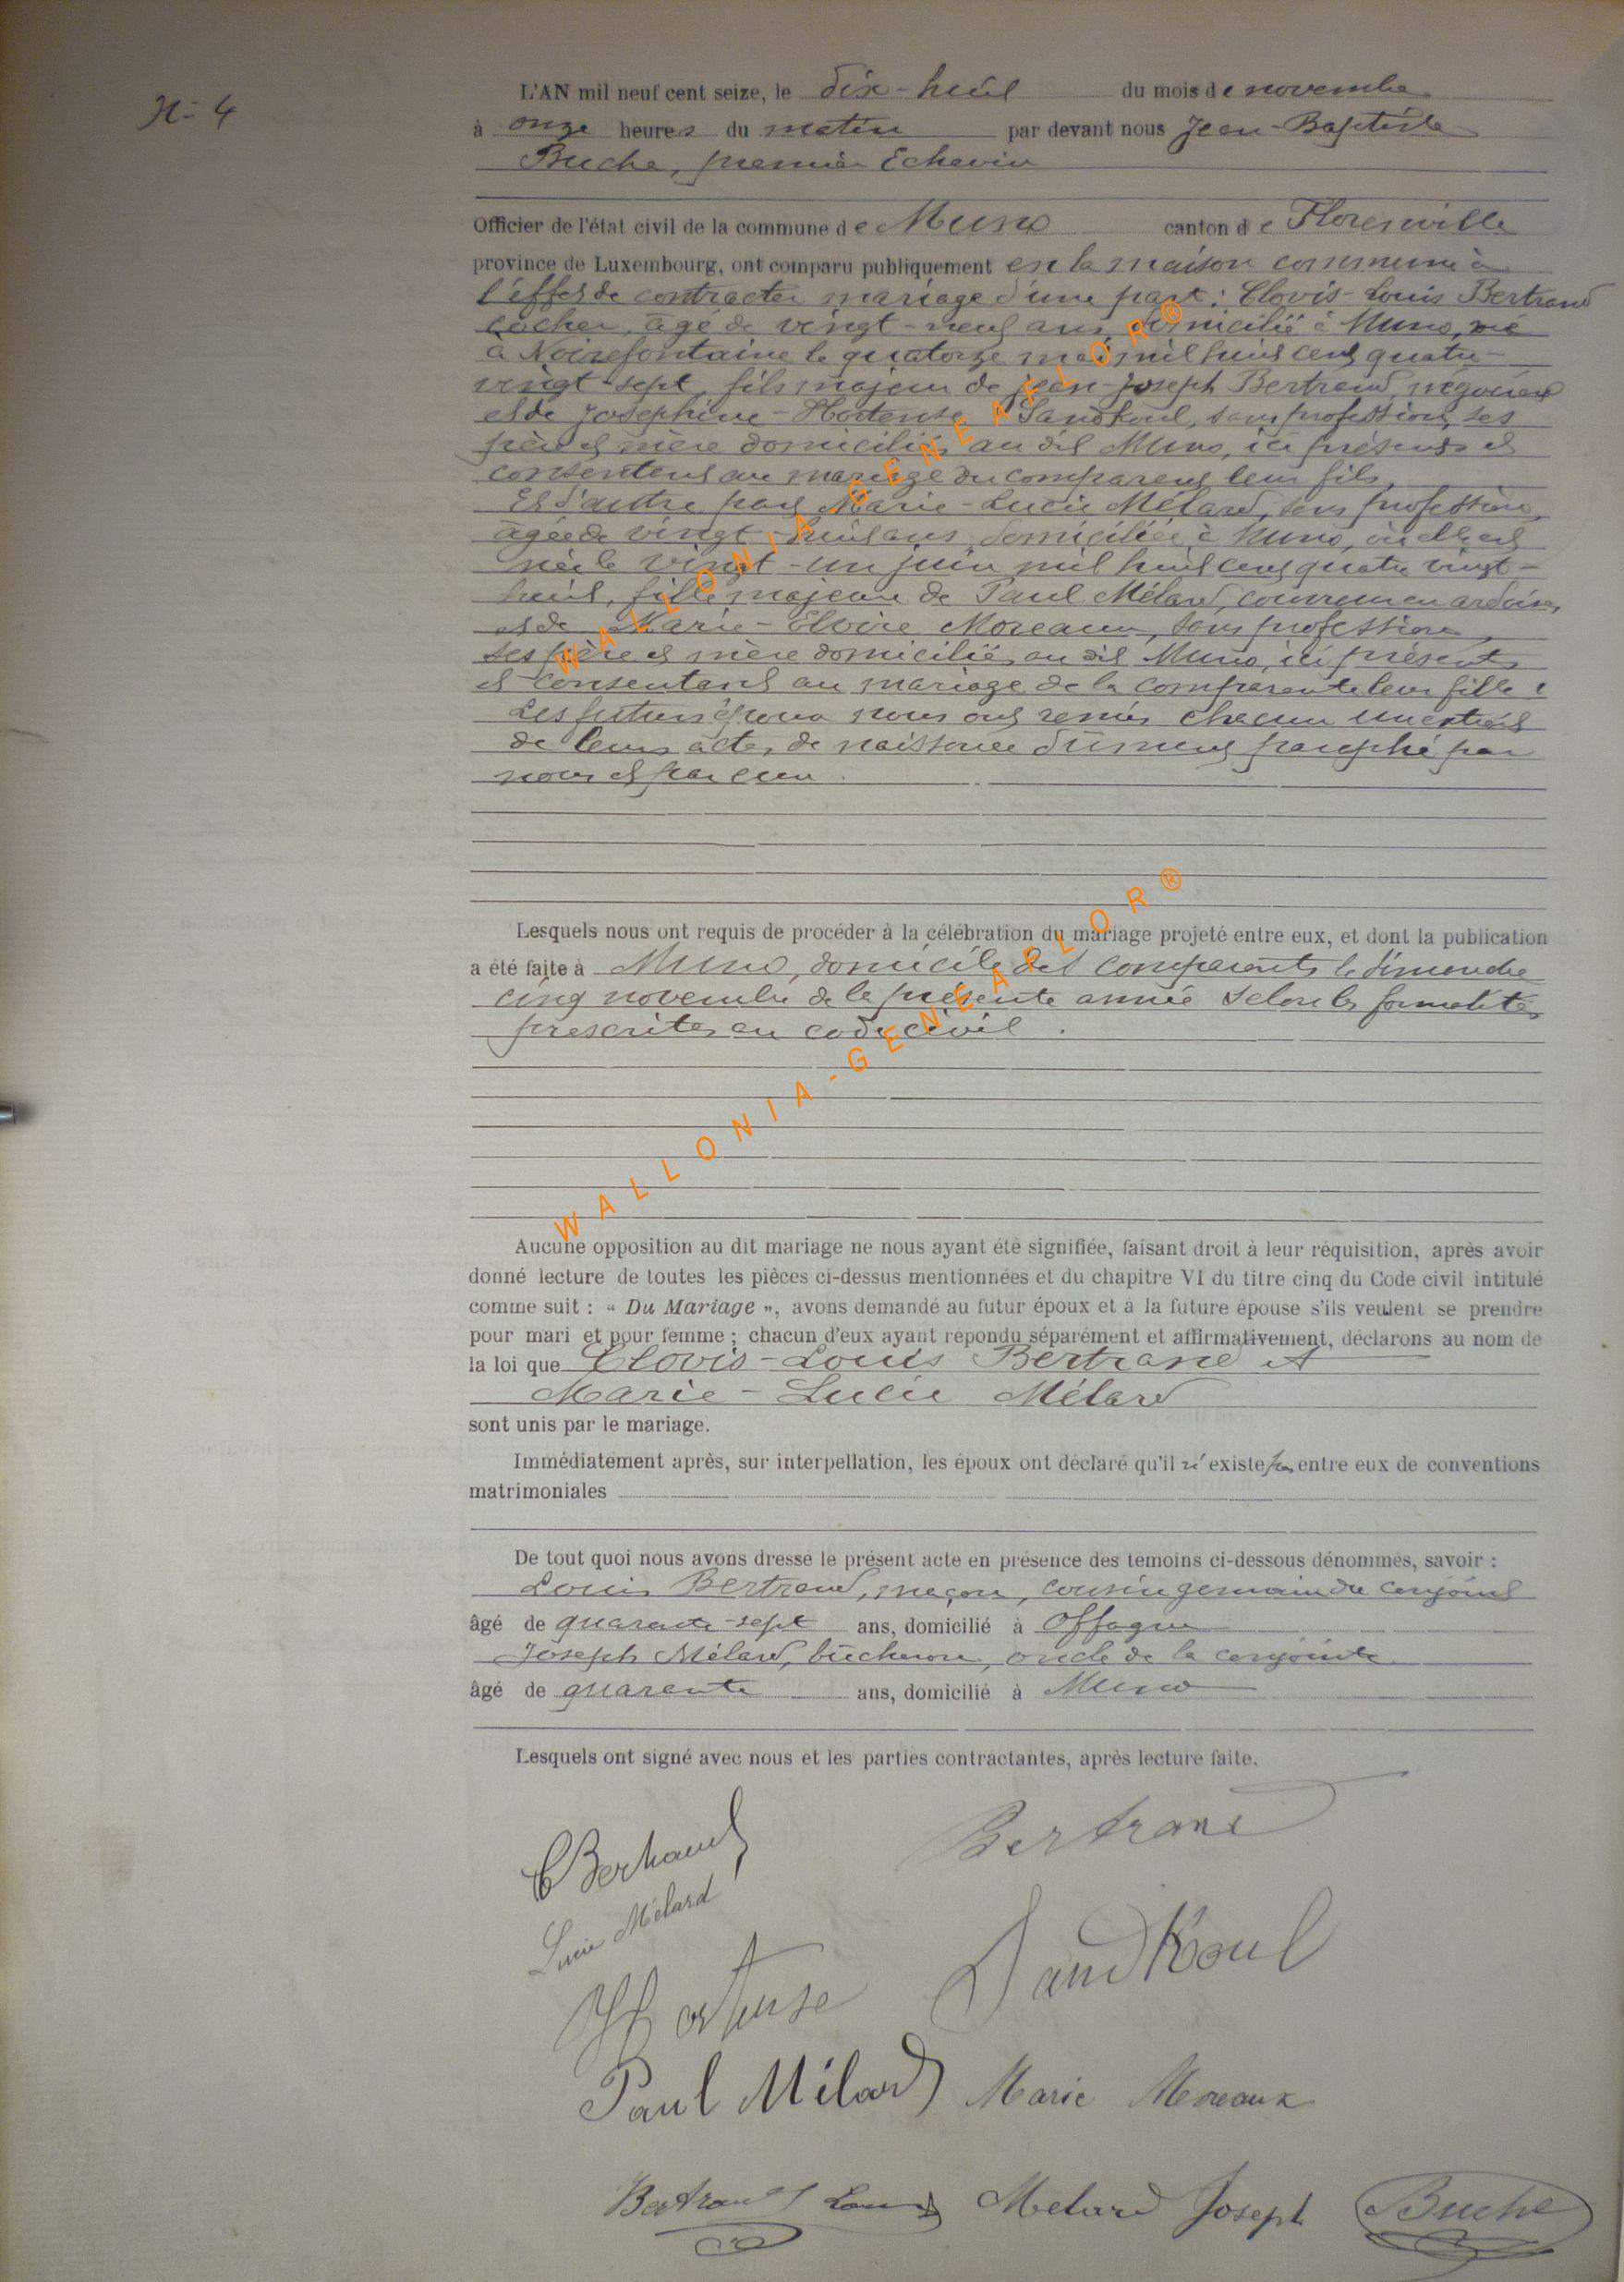 N=4
L'AN mil neuf cent seize, le dix-huit du mois de novembre
à onze heures du matin par devant nous Jean-Baptiste
Buche, premier Echevin
Officier de l'état civil de la commune de Muno canton de Florenville
province de Luxembourg, ont comparu publiquement en la maison commune à
l'effet de contracter mariage d'une part: Clovis-Louis Bertrand
cocher, âgé de vingt-neuf ans, domicilié à Muno, né
à Noirefontaine le quatorze mai mil huit cent quatre-
vingt-sept, fils majeur de Jean-Joseph Bertrand, négociant
et de Joséphine-Hortense Sandkoul, sans profession, ses
père et mère domiciliés au dit Muno, ici présents et
consentant au mariage du comparent leur fils,
Et d'autre part Marie-Lucie Mélard, sans profession,
âgée de vingt-huit ans, domiciliée à Muno, où elle est
née le vingt-un juin mil huit cent quatre vingt-
huit, fille majeure de Paul Mélard, couvreur en ardoises,
et de Marie-Elvire Moreaux, sans profession,
ses père et mère domiciliés au dit Muno, ici présents
et consentant au mariage de la comparente leur fille;
Les futurs époux nous ont remis chacun un extrait
de leurs actes de naissance dûment paraphé par
nous et par eux.
Lesquels nous ont requis de procéder à la célébration du mariage projeté entre eux, et dont la publication
a été faite à Muno, domicile des comparants le dimanche
cinq novembre de la présente année selon les formalités
prescrites au code civil.
Aucune opposition au dit mariage ne nous ayant été signifiée, faisant droit à leur réquisition, après avoir
donné lecture de toutes les pièces ci-dessus mentionnées et du chapitre VI du titre cinq du Code civil intitulé
comme suit : « Du Mariage », avons demandé au futur époux et à la future épouse s'ils veulent se prendre
pour mari et pour femme ; chacun d'eux ayant répondu séparément et affirmativement, déclarons au nom de
la loi que Clovis-Louis Bertrand et
Marie-Lucie Mélard
sont unis par le mariage.
Immédiatement après, sur interpellation, les époux ont déclaré qu'il n'existe pas entre eux de conventions
matrimoniales
De tout quoi nous avons dressé le présent acte en présence des témoins ci-dessous dénommés, savoir :
Louis Bertrand, maçon, cousin germain du conjoint
âgé de quarante-sept ans, domicilié à Offagne
Joseph Mélard, bûcheron, oncle de la conjointe
âgé de quarante ans, domicilié à Muno
Lesquels ont signé avec nous et les parties contractantes, après lecture faite.
C Bertrand
Bertrand
Lucie Mélard
Hortense Sandkoul
Paul Mélard Marie Moreaux
Bertrand Louis Melard Joseph Buche
WALLONIA-GENEAFLOR®
WALLONIA-GENEAFLOR®